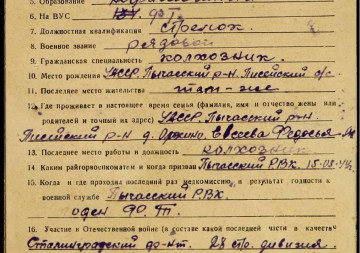 5. Образование
6. На ВУС
7. Должностная квалификация стрелок
8. Военное звание рядовой
9. Гражданская специальность колхозник
10. Место рождения УАССР, Пычасский р-н. с/с
11. Последнее место жительства там-же
12. Где проживает в настоящее время семья (фамилия, имя и отчество жены или
родителей и точный их адрес) УАССР, Пычасский р-н
р-н д. Евсеева Федосья
13. Последнее место работы и должность колхозник
14. Каким райгорвоенкоматом и когда призван Пычасский РВК.
15. Когда и где проходил последний раз медкомиссию и результат годности к
военной службе Пычасский РВК
годен
16. Участие в Отечественной войне (в составе какой последней части в качестве
Сталинградский фронт. 28 стр. дивизия.